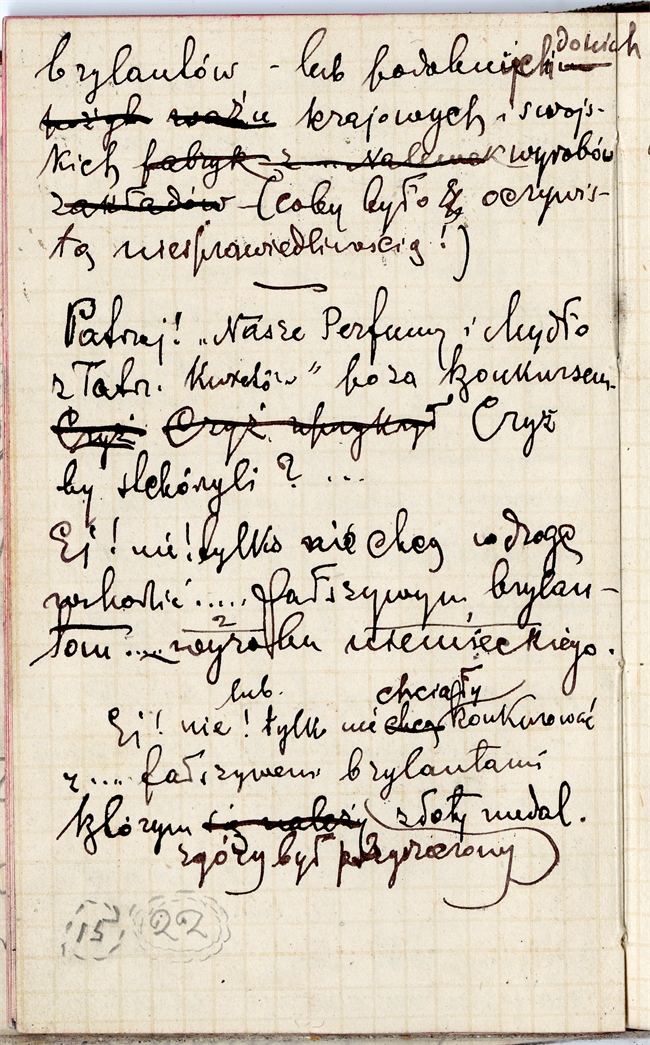 brylantów – lub podobnych
krajowych i swojs-
kich fabryk z wyrobów
zakładów – (coby było oczywis-
tą niesprawiedliwością!)
Patrzej! „Nasze Perfumy i Mydło
z Tatr. " poza konkursem.
Czyż Czyż Czyż
by stchórzyli? ...
Ej! nie! tylko nie chcą w drogę
wchodzić ..... fałszywym brylan-
tom .... wyrobu niemieckiego.
lub. chciały
Ej! nie! tylko nie chcą konkurować
z .... fałszywemi brylantami
którym się należy złoty medal.
zgóry był przeznaczony
15 22